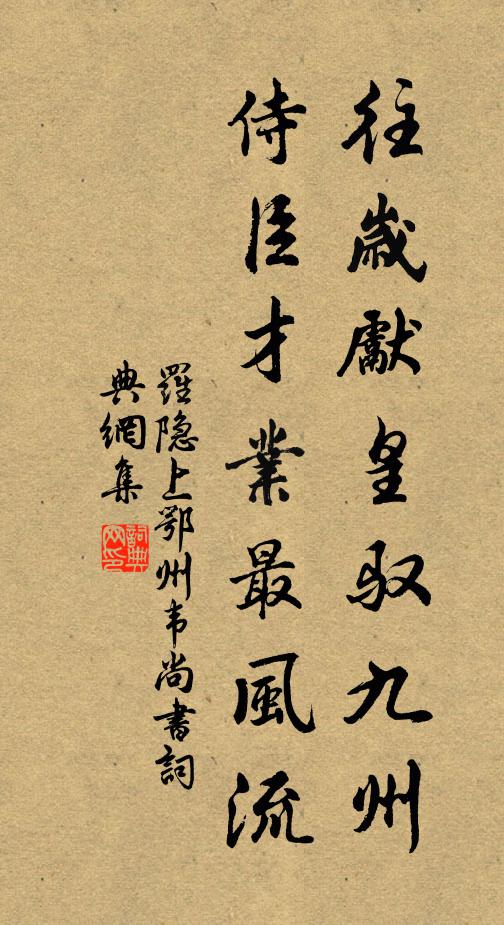 往歲獻皇馭九州
侍臣才業最風流
羅隐上鄂州韦尚書詞
典網集
詞典网印